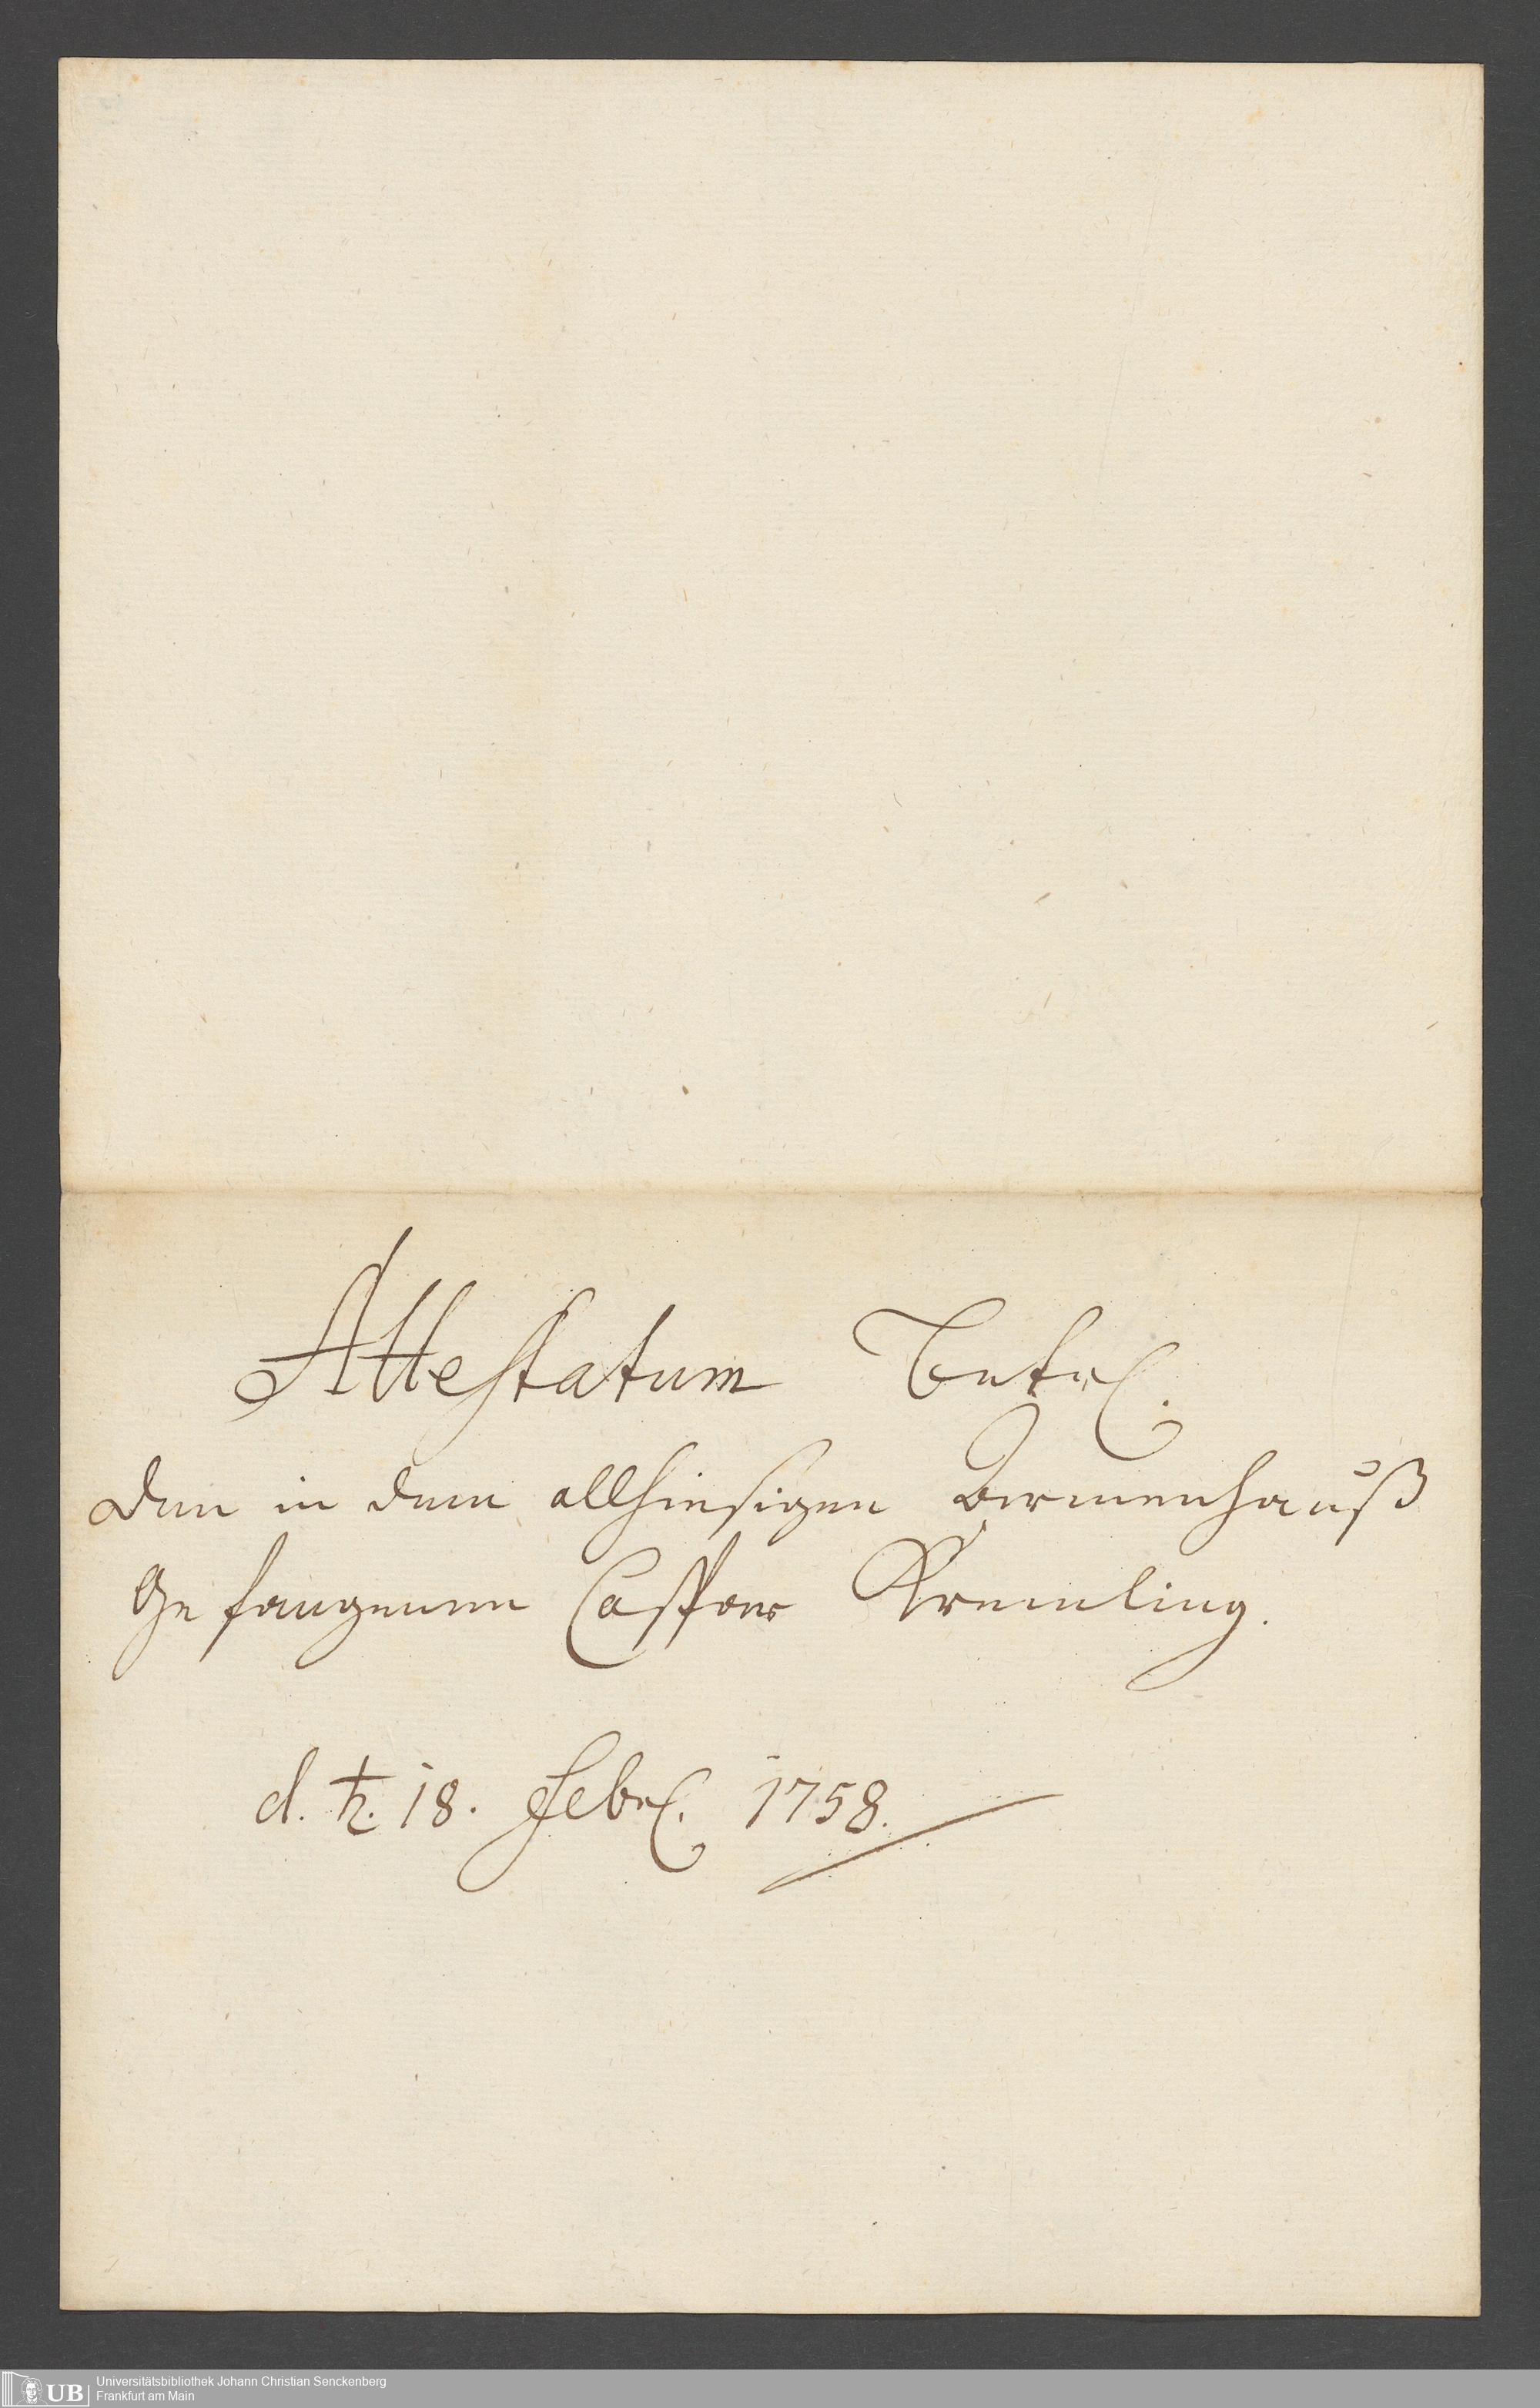 Attestatum Betrl.
den in dem allhiesigen Armenhauß
Gefangenen Caspar Kremling.
d. ♄. 18. Febrl. 1758.
UB Universitätsbibliothek Johann Christian Senckenberg
Frankfurt am Main